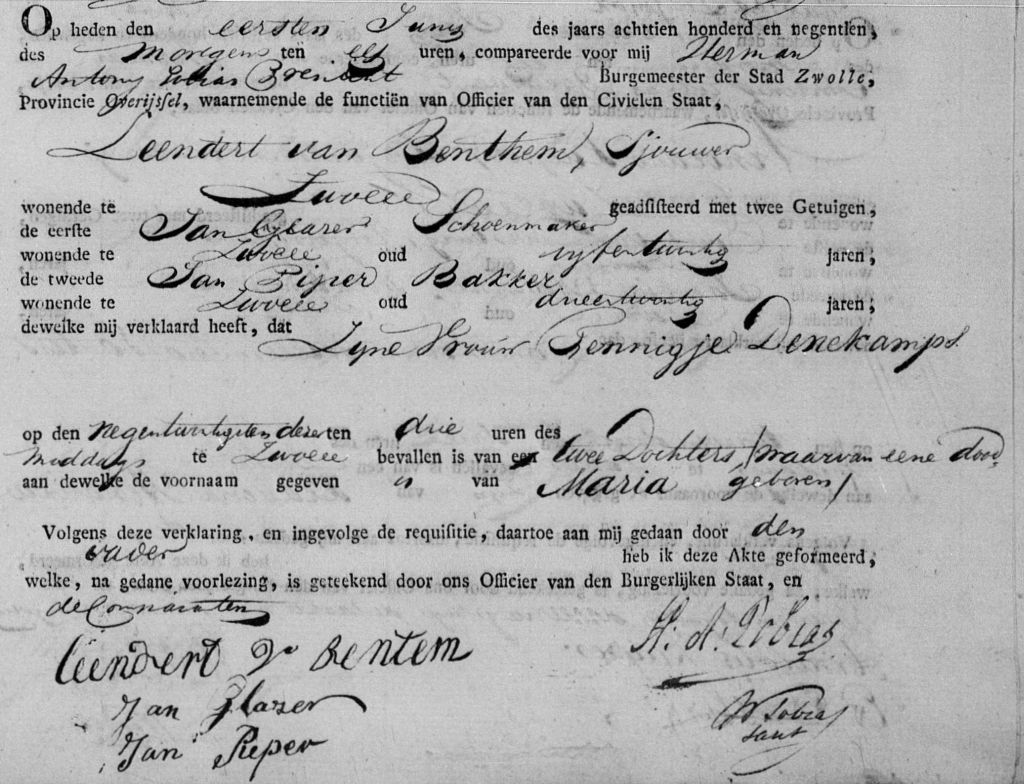 Op heden den eersten Juny des jaars achttien honderd en negentien,
des Morgens ten elf uren, compareerde voor mij Herman
Antony Tobias Burgemeester der Stad Zwolle,
Provincie Overijssel, waarnemende de functiën van Officier van den Civielen Staat,
Leendert van Benthem, Sjouwer
wonende te Zwolle geadsisteerd met twee Getuigen,
de eerste Jan Schoenmaker
wonende te Zwolle oud vyfentwintig jaren,
de tweede Jan Piper Bakker
wonende te Zwolle oud drieentwintig jaren,
dewelke mij verklaard heeft, dat
Zyne Vrouw Hennigje Denekamps
op den negentwintigsten dezer ten drie uren des
Middags te Zwolle bevallen is van een twee Dochters /waarvan eene dood
aan dewelke de voornaam gegeven is van Maria geboren/
Volgens deze verklaring, en ingevolge de requisitie, daartoe aan mij gedaan door den
vader heb ik deze Akte geformeerd,
welke, na gedane voorlezing, is geteekend door ons Officier van den Burgerlijken Staat, en
de Comparanten
Leendert v Bentem H: A: Tobias
Jan Glazer Tobias
Jan Pieper